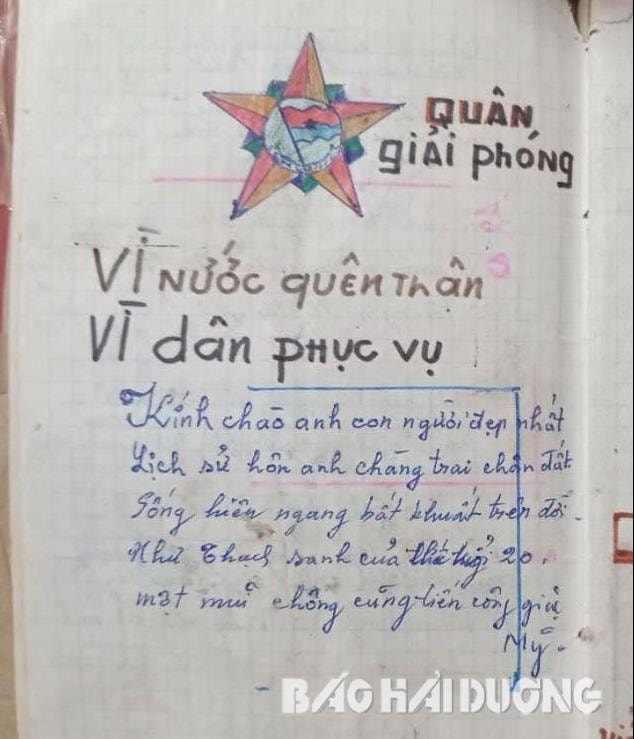 QUÂN
giẢi phóng
VÌ NƯỚC QUÊN THÂN
VÌ dân PHỤC VỤ
Kính chào anh con người đẹp nhất
Lịch sử hôn anh chàng trai chân đất
Sống hiên ngang bất khuất trên đời
Như Thạch sanh của thế kỷ 20.
một muĩ chông cũng tiến công giặc
Mỹ.
BÁO HẢI DƯƠNG